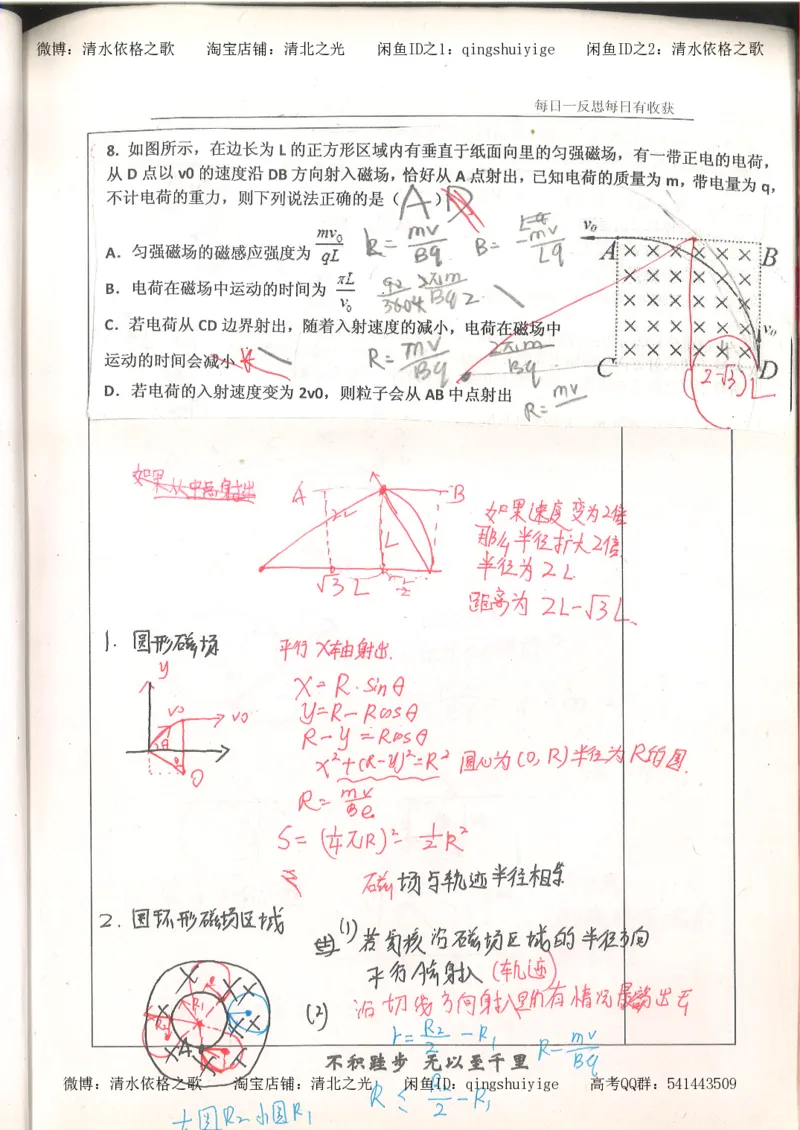 微博：清水依格之歌 淘宝店铺：清北之光 闲鱼ID之1：qingshuiyige 闲鱼ID之2：清水依格之歌
每日一反思每日有收获
8．如图所示，在边长为 L 的正方形区域内有垂直于纸面向里的匀强磁场，有一带正电的电荷，
从 D 点以 v0 的速度沿 DB 方向射入磁场，恰好从 A 点射出，已知电荷的质量为 m，带电量为 q，
不计电荷的重力，则下列说法正确的是（ A D ）
A．匀强磁场的磁感应强度为 mv₀/qL
R= mv/Bq B= mv/Lq
B．电荷在磁场中运动的时间为 πL/v₀
C．若电荷从 CD 边界射出，随着入射速度的减小，电荷在磁场中
运动的时间会减小
R= mv/Bq 2πm/Bq
D．若电荷的入射速度变为 2v0，则粒子会从 AB 中点射出
R= mv
v₀
A B
v₀
C D
(2-√3)L
如果从中点射出
A B
2L
L
√3 L L/2
如果速度变为2倍
那么半径扩大2倍
半径为 2L
距离为 2L-√3L
1. 圆形磁场
平行X轴射出.
y
v0 v0
θ
θ
O
X=R·sinθ
Y=R-Rcosθ
R-Y=Rcosθ
x²+(R-y)²=R² 圆心为(0,R)半径为R的圆.
R= mv/Be
磁场与轨迹半径相等
2. 圆环形磁场区域
(1)若负核沿磁场区域的半径方向
平行A射入(轨迹)
(2) 沿切线方向射入
r= R₂/2 -R₁
R= mv/Bq
R₁
R₂
不积跬步 无以至千里
微博：清水依格之歌 淘宝店铺：清北之光 闲鱼ID：qingshuiyige 高考QQ群：541443509
R≤ R₂/2 -R₁
大圆R₂小圆R₁